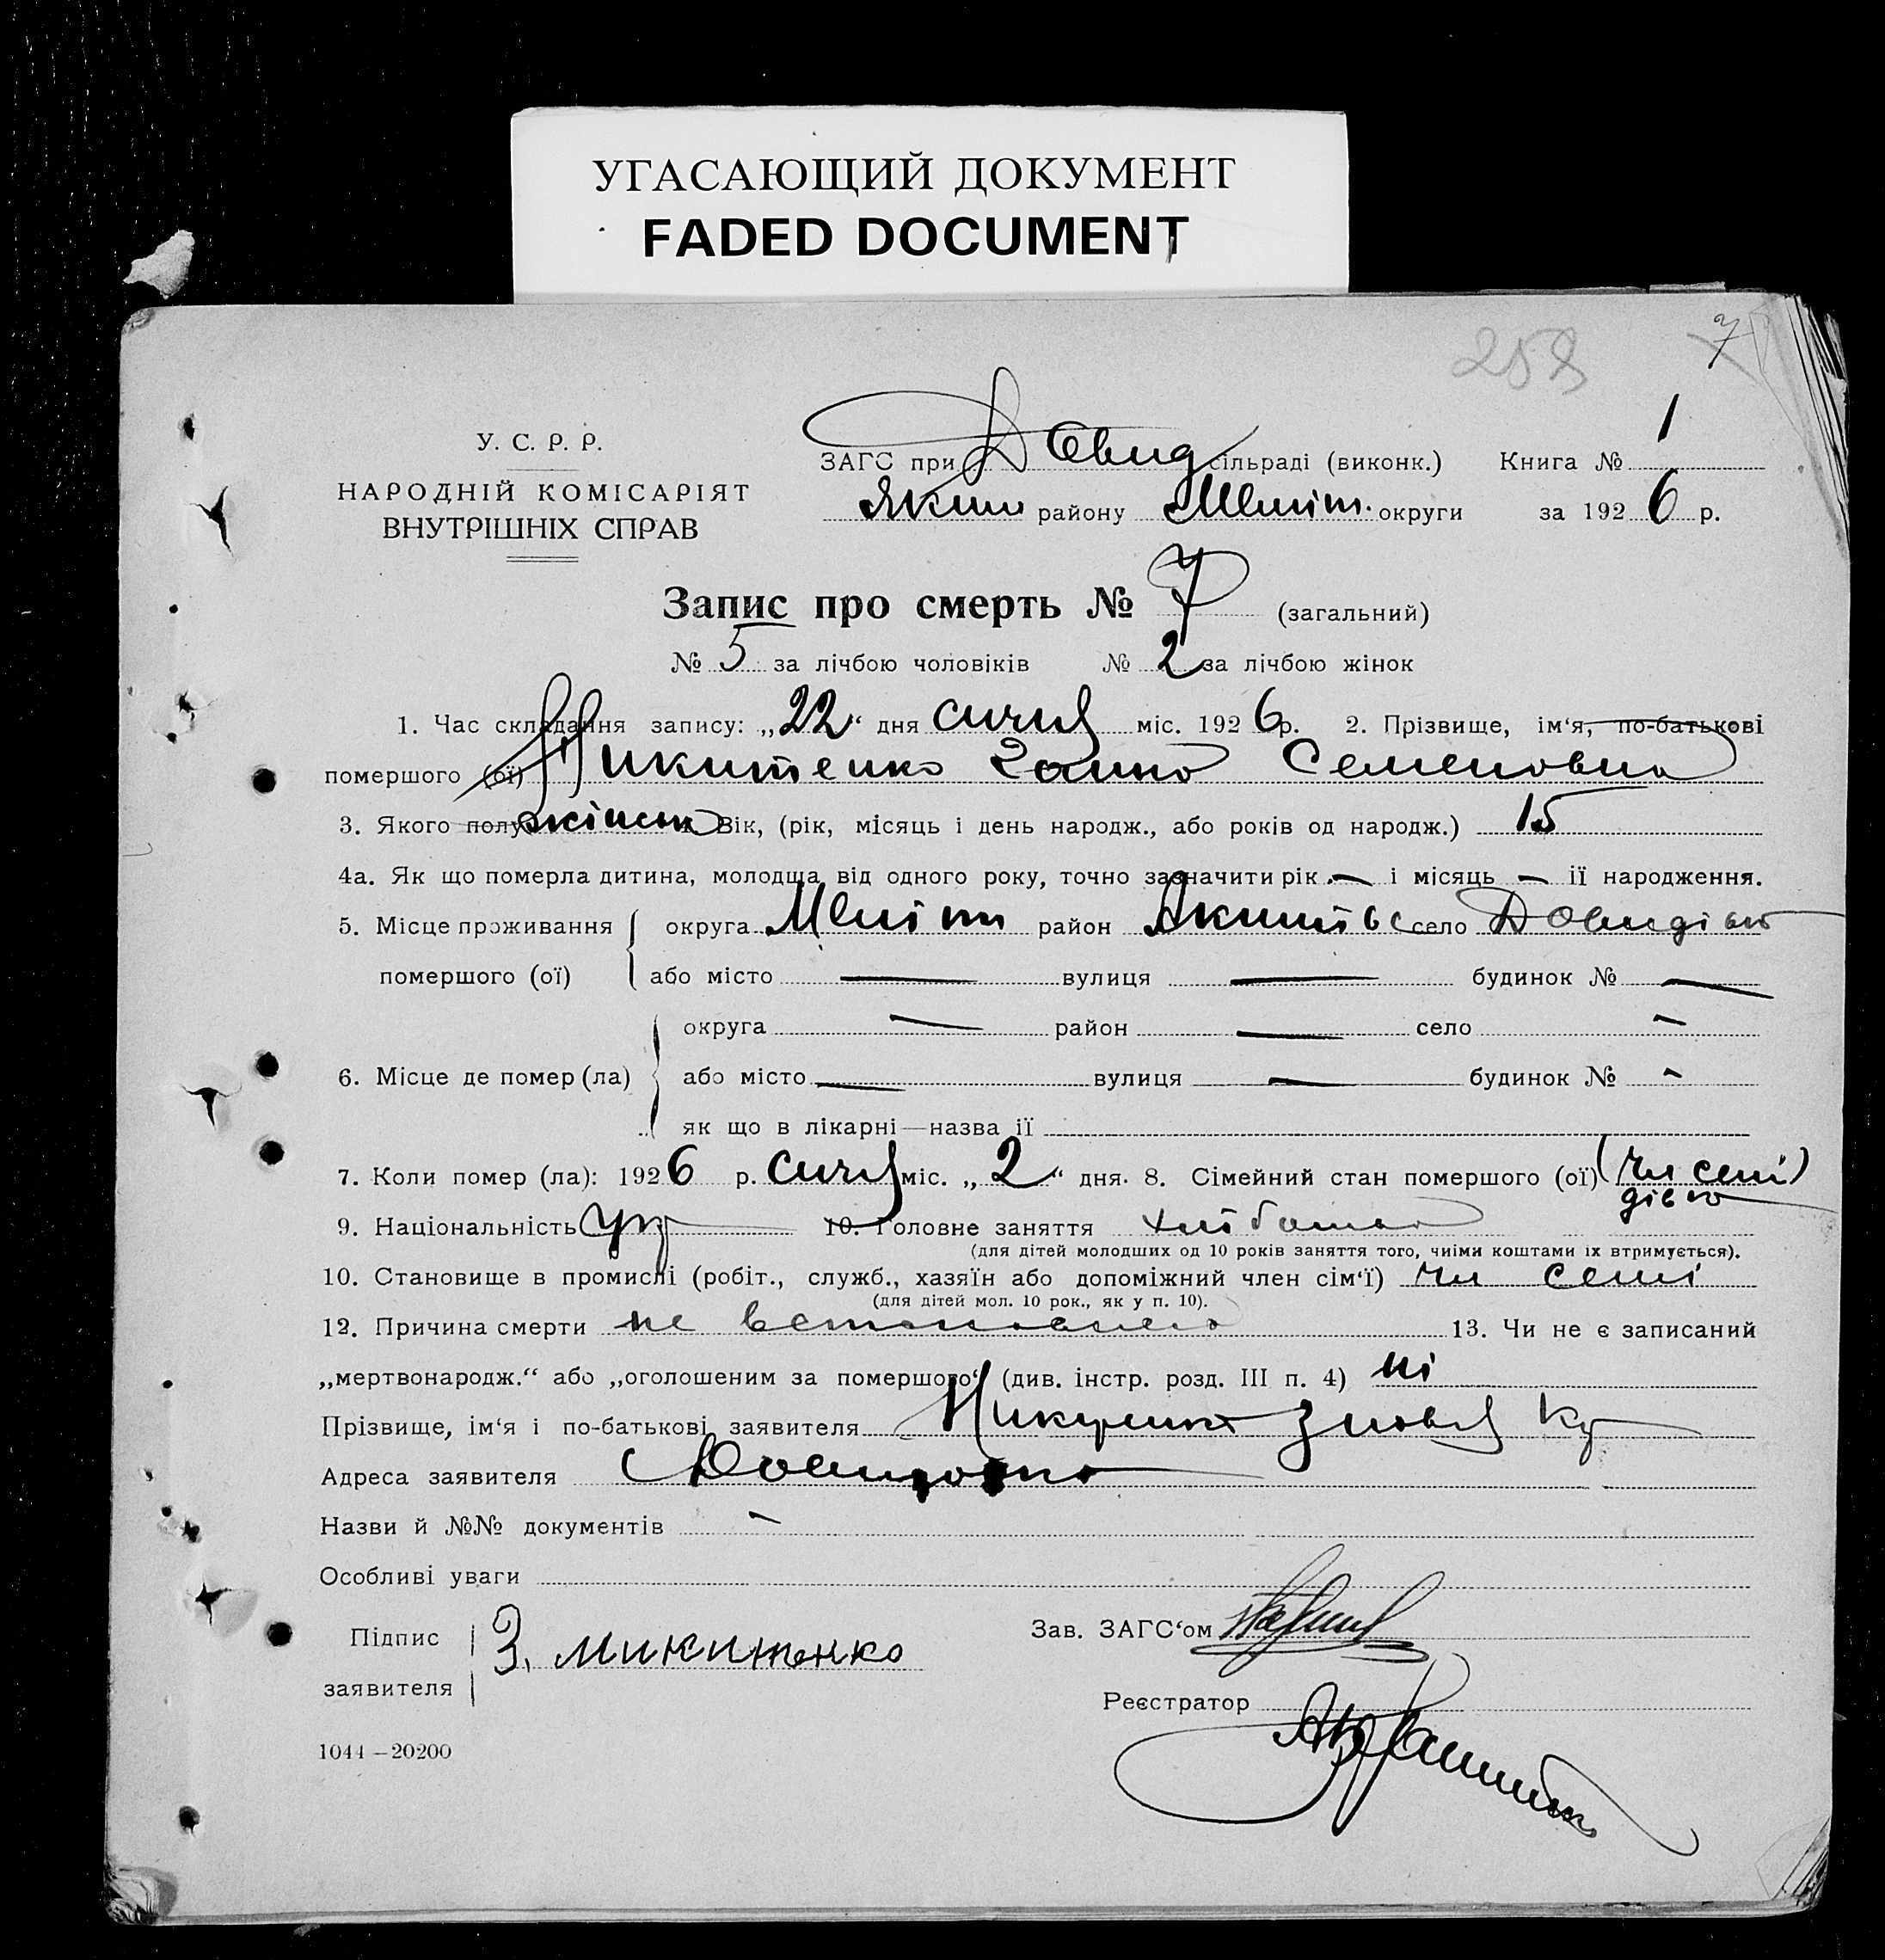 УГАСАЮЩИЙ ДОКУМЕНТ
FADED DOCUMENT
258
7
У. С. Р. Р.
НАРОДНІЙ КОМІСАРІЯТ
ВНУТРІШНІХ СПРАВ
ЗАГС при Довид сільраді (виконк.) Книга № 1
Яким району Меліт. округи за 1926 р.
Запис про смерть № 7 (загальний)
№ 5 за лічбою чоловіків № 2 за лічбою жінок
1. Час складання запису: „22“ дня січня міс. 1926 р. 2. Прізвище, ім‘я, по-батькові
помершого (ої) Микитенко Ганна Семеновна
3. Якого полу жіноч Вік, (рік, місяць і день народж., або років од народж.) 15
4а. Як що померла дитина, молодща від одного року, точно зазначити рік — і місяць — ії народження.
5. Місце проживання округа Меліт район Якимівс село Довидівк
помершого (ої) або місто — вулиця — будинок № —
округа — район — село —
6. Місце де помер (ла) або місто — вулиця — будинок № -
як що в лікарні—назва ії
7. Коли помер (ла): 1926 р. січня міс. „2“ дня. 8. Сімейний стан помершого (ої) (чл семі)
дівка
9. Національність Укр 10. Головне заняття хлібопаш
(для дітей молодших од 10 років заняття того, чиїми коштами їх втримується).
10. Становище в промислі (робіт., служб., хазяїн або допоміжний член сім‘ї) чл семі
(для дітей мол. 10 рок., як у п. 10).
12. Причина смерти не встановлено 13. Чи не є записаний
„мертвонародж.“ або „оголошеним за помершого“ (див. інстр. розд. III п. 4) ні
Прізвище, ім‘я і по-батькові заявителя
Адреса заявителя
Назви й №№ документів -
Особливі уваги
Підпис З. Микитенко Зав. ЗАГС‘ом
заявителя
Реєстратор
1044—20200